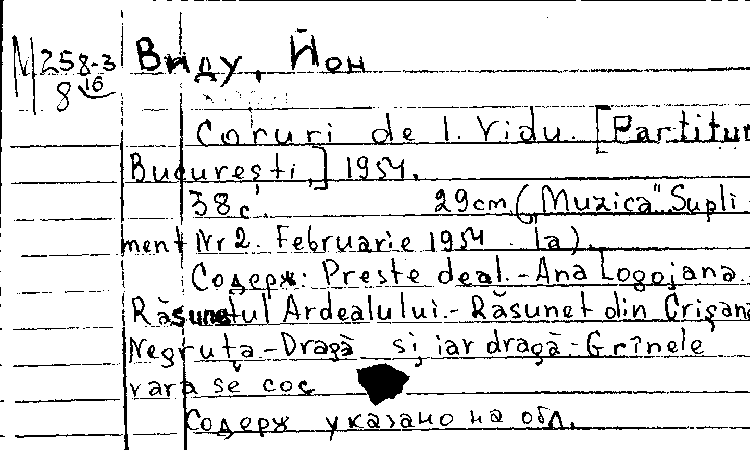 М 258-3
Виду, Йон
8 16
Coruri de I. Vidu. [Partitur
Bucureşti,] 1954.
38 с. 29cm. („Muzica" Supli
ment Nr 2. Februarie 1954 la).
Содерж: Preste deal.-Ana Logojana.
Răsunetul Ardealului.-Răsunet din Crişana
Negruţa.-Dragă şi iar dragă.-Grînele
vara se coc
Содерж указано на обл.